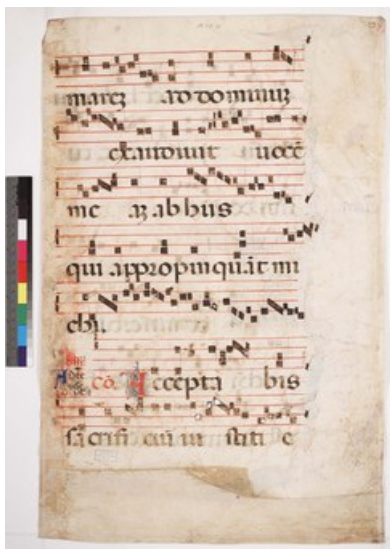 marez ad dominuz
exaudiuit uocē
me az ab hiis
qui appropinquāt mi
chi
cō. Accepta bis
sacrifi ciū iu stiti e